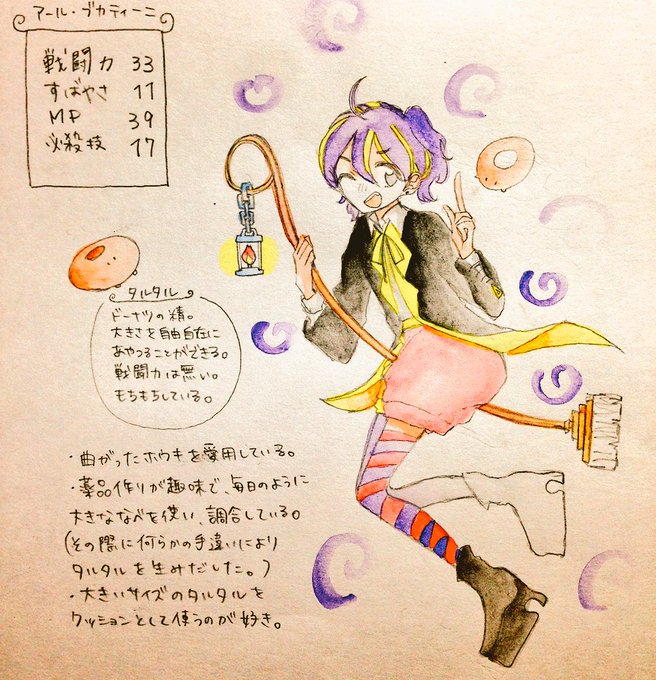 アール・ブカティーニ
戦闘力 33
すばやさ 11
MP 39
必殺技 17
タルタル
ドーナツの精。
大きさを自由自在に
あやつることができる。
戦闘力は無い。
もちもちしている。
・曲がったホウキを愛用している。
・薬品作りが趣味で、毎日のように
大きななべを使い、調合している。
(その際に何らかの手違いにより
タルタルを生みだした。)
・大きいサイズのタルタルを
クッションとして使うのが好き。